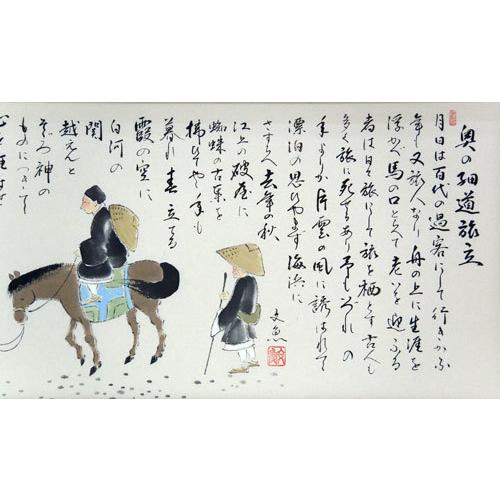 奥の細道旅立
月日は百代の過客にして行きかふ
年も又旅人なり舟の上に生涯を
浮かべ馬の口とらへて老いを迎ふる
者は日々旅にして旅を栖とす古人も
多く旅に死せるあり予もいづれの
年よりか片雲の風に誘はれて
漂泊の思ひやまず海浜に
さすらへ去年の秋
江上の破屋に
蜘蛛の古巣を
掃ひてやゝ年も
暮れ春立てる
霞の空に
白河の
関
越えんと
そぞろ神の
ものにつきて
文魚